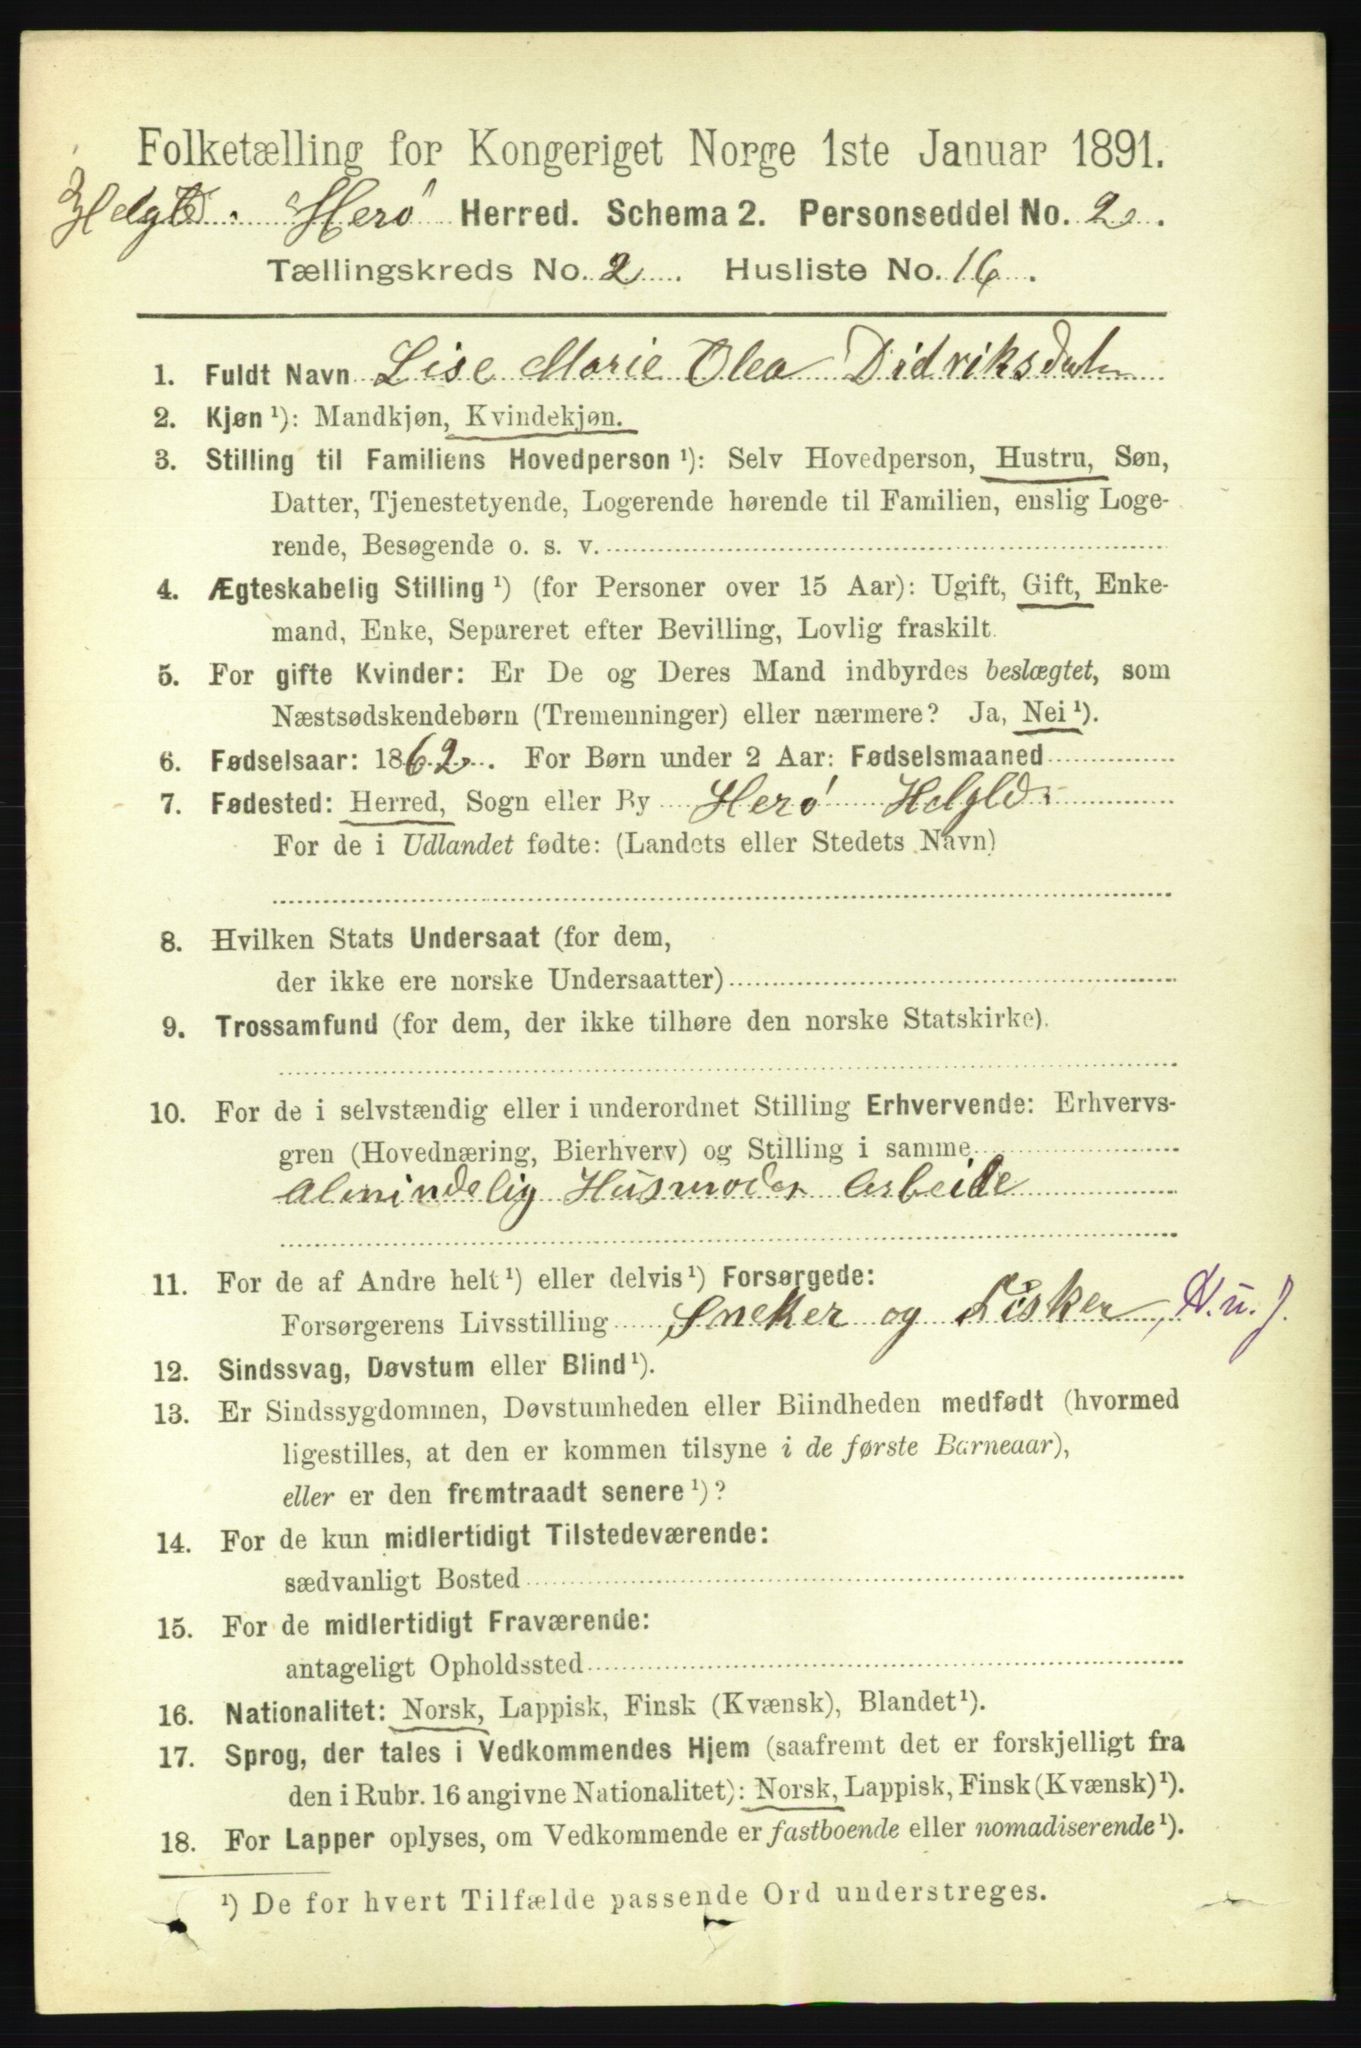 Folketælling for Kongeriget Norge 1ste Januar 1891.
Helgld. Herø Herred. Schema 2. Personseddel No. 2.
Tællingskreds No. 2. Husliste No. 16.
1. Fuldt Navn Lise Marie Olea Didriksdatr
2. Kjøn ¹): Mandkjøn, Kvindekjøn.
3. Stilling til Familiens Hovedperson ¹): Selv Hovedperson, Hustru, Søn,
Datter, Tjenestetyende, Logerende hørende til Familien, enslig Loge-
rende, Besøgende o. s. v.
4. Ægteskabelig Stilling ¹) (for Personer over 15 Aar): Ugift, Gift, Enke-
mand, Enke, Separeret efter Bevilling, Lovlig fraskilt.
5. For gifte Kvinder: Er De og Deres Mand indbyrdes beslægtet, som
Næstsødskendebørn (Tremenninger) eller nærmere? Ja, Nei ¹).
6. Fødselsaar: 1862. For Børn under 2 Aar: Fødselsmaaned
7. Fødested: Herred, Sogn eller By Herø Helgld.
For de i Udlandet fødte: (Landets eller Stedets Navn)
8. Hvilken Stats Undersaat (for dem,
der ikke ere norske Undersaatter)
9. Trossamfund (for dem, der ikke tilhøre den norske Statskirke).
10. For de i selvstændig eller i underordnet Stilling Erhvervende: Erhvervs-
gren (Hovednæring, Bierhverv) og Stilling i samme
Almindelig Husmoder Arbeide
11. For de af Andre helt ¹) eller delvis ¹) Forsørgede:
Forsørgerens Livsstilling Sneker og Fisker, H. u. J.
12. Sindssvag, Døvstum eller Blind ¹).
13. Er Sindssygdommen, Døvstumheden eller Blindheden medfødt (hvormed
ligestilles, at den er kommen tilsyne i de første Barneaar),
eller er den fremtraadt senere ¹)?
14. For de kun midlertidigt Tilstedeværende:
sædvanligt Bosted
15. For de midlertidigt Fraværende:
antageligt Opholdssted
16. Nationalitet: Norsk, Lappisk, Finsk (Kvænsk), Blandet ¹).
17. Sprog, der tales i Vedkommendes Hjem (saafremt det er forskjelligt fra
den i Rubr. 16 angivne Nationalitet): Norsk, Lappisk, Finsk (Kvænsk) ¹).
18. For Lapper oplyses, om Vedkommende er fastboende eller nomadiserende ¹).
¹) De for hvert Tilfælde passende Ord understreges.